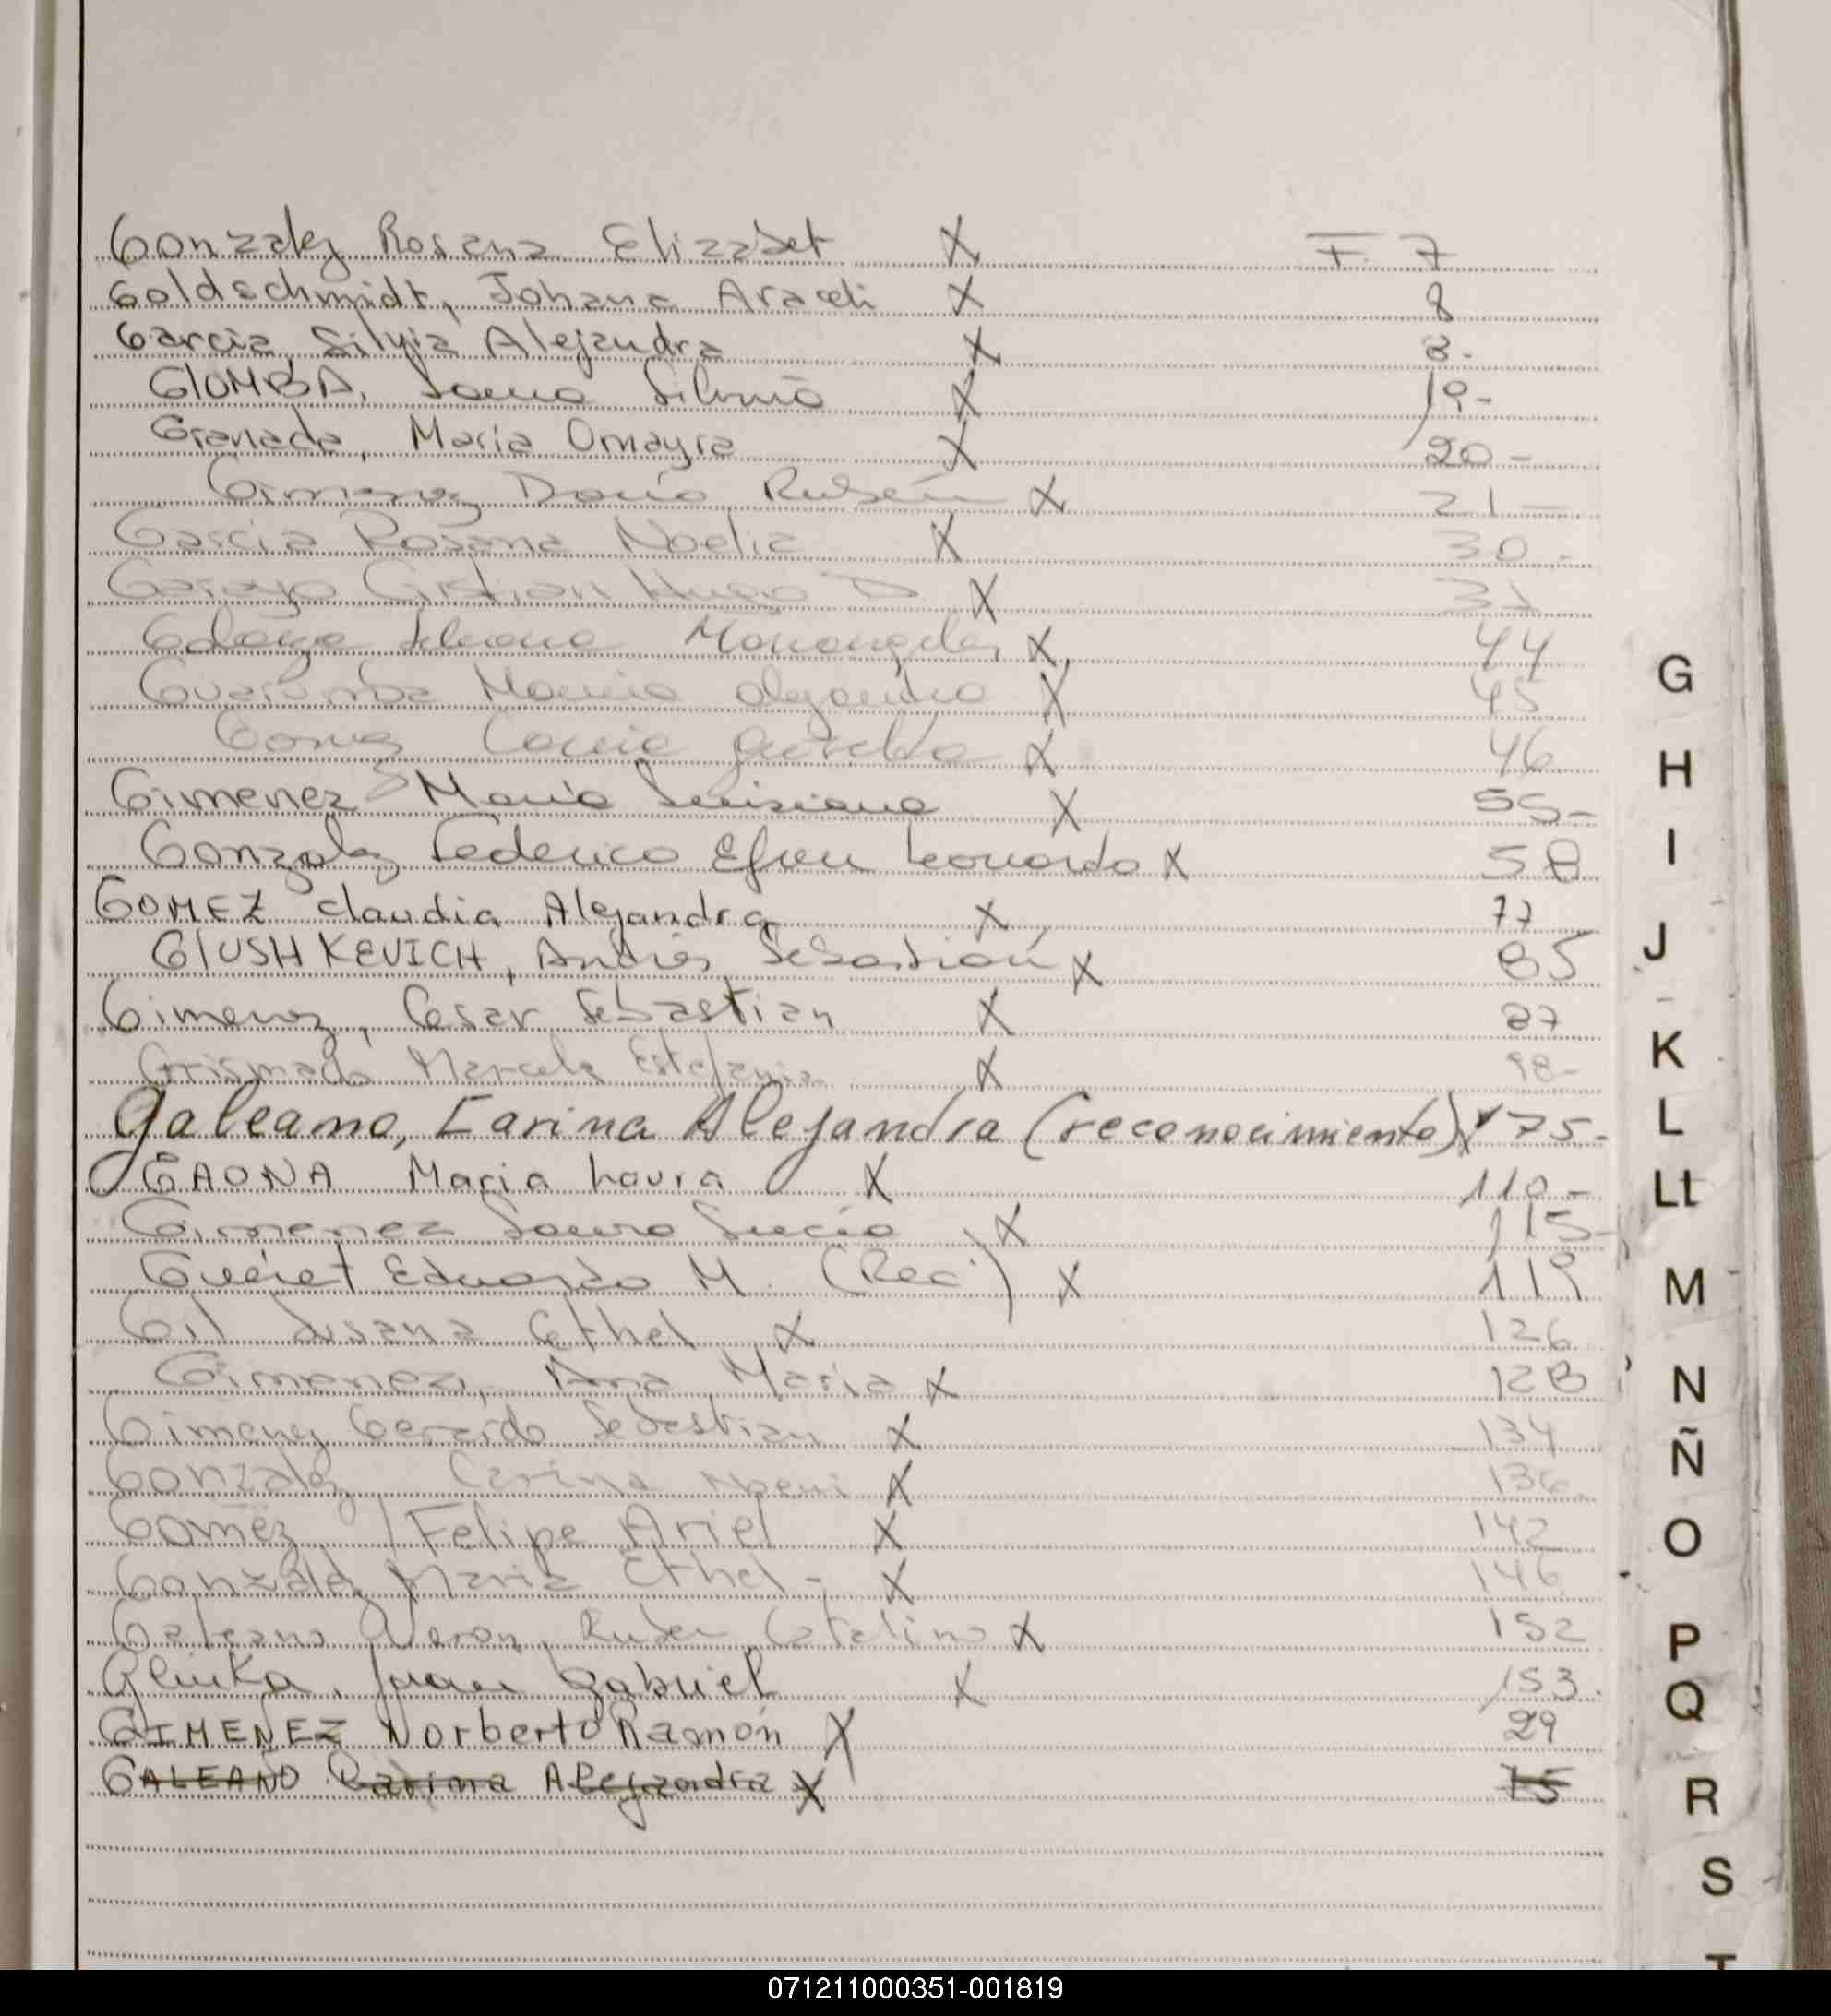 Gonzalez Rosana Elizabet X F. 7
Goldschmidt, Johana Araceli X 8
Garcia, Silvia Alejandra X 8-
GlOMBA, Laura Silvina X 19-
Granada, Maria Omayra X 20-
Gimenez Dario Rubén X 21-
Garcia Rosana Noelia X 30-
Garayo Cristian Hugo D X 31
Silvana X, 44
Maria Alejandra X 45
X 46
Gimenez Maria Luisiana X 55-
Gonzalez Federico Efren Leonardo X 58
GOMEZ Claudia Alejandra X 77
GlUSHKEVICH, Andrés Sebastián X 85
Gimenez, Cesar Sebastian X 87
Grismado Marcela Estefania X 98-
Galeano, Karina Alejandra (reconocimiento) X 75-
GAONA Maria Laura X 110-
Gimenez Laura Lucia X 115-
Eduardo M. (Rec.) X 119
Gil Susana Ethel X 126
Gimenez, Ana Maria X 128
Gimenez Gerardo Sebastian X 134
Gonzalez Carina Noemi X 136
Gomez Felipe Ariel X 142
Gonzalez Maria Ethel - X 146
Galeano Veron, Ruben Catalino X 152
Glinka, Juan Gabriel X 153.
GIMENEZ Norberto Ramón X 29
GALEANO Karina Alejandra X 75
G
H
I
J
K
L
Ll
M
N
Ñ
O
P
Q
R
S
T
071211000351-001819